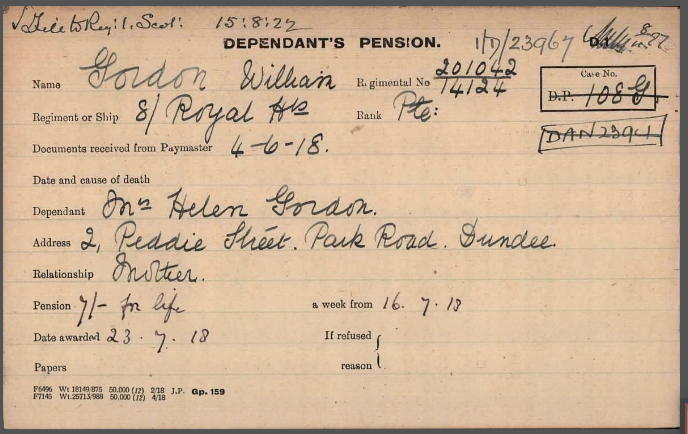 √ File to Reg: 1, Scot: 15:8:22
DEPENDANT'S PENSION. 1/D/23967
Name Gordon William Regimental No 201042
14124
Case No.
D.P. 108 G.
Regiment or Ship 8/ Royal Hrs Rank Pte:
DAN 2394
Documents received from Paymaster 4-6-18.
Date and cause of death
Dependant Mrs Helen Gordon.
Address 2, Peddie Street. Park Road. Dundee.
Relationship Mother.
Pension 7/- for life a week from 16. 7. 18
Date awarded 23. 7. 18 If refused
Papers reason
F6496 Wt 18149/875 50,000 (12) 2/18 J.P. Gp. 159
F7145 Wt.25713/988 50,000 (12) 4/18